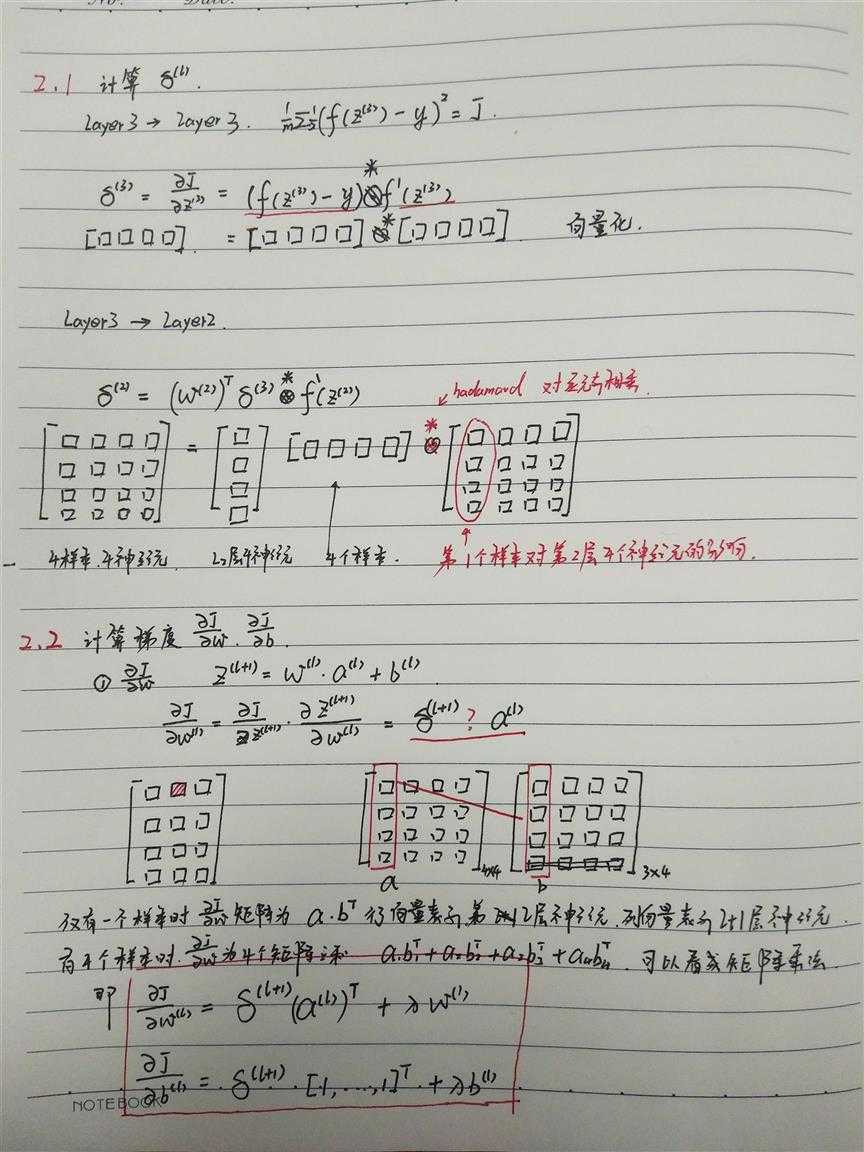 No. Date.
2.1 计算 δ⁽ˡ⁾.
Layer3 → Layer3. 1/m Σ ½(f(z⁽³⁾) - y)² = J.
δ⁽³⁾ = ∂J/∂z⁽³⁾ = (f(z⁽³⁾) - y) * f'(z⁽³⁾)
[□ □ □ □] = [□ □ □ □] * [□ □ □ □] 向量化.
Layer3 → Layer2.
δ⁽²⁾ = (W⁽²⁾)ᵀ δ⁽³⁾ * f'(z⁽²⁾)
↙ hadamard 对应元素相乘.
4样本.4神经元. L2层4神经元 4个样本.
第1个样本对第2层4个神经元的影响.
2.2 计算梯度 ∂J/∂w. ∂J/∂b.
① ∂J/∂w z⁽ˡ⁺¹⁾ = w⁽ˡ⁾ · a⁽ˡ⁾ + b⁽ˡ⁾
∂J/∂w⁽ˡ⁾ = ∂J/∂z⁽ˡ⁺¹⁾ · ∂z⁽ˡ⁺¹⁾/∂w⁽ˡ⁾ = δ⁽ˡ⁺¹⁾ ? a⁽ˡ⁾
4×4 3×4
a b
仅有一个样本时 ∂J/∂w 矩阵为 a·bᵀ 行向量表示第 l层神经元. 列向量表示l+1层神经元.
有4个样本时. ∂J/∂w 为4个矩阵之和 a₁b₁ᵀ + a₂b₂ᵀ + a₃b₃ᵀ + a₄b₄ᵀ. 可以看成矩阵乘法
即 ∂J/∂w⁽ˡ⁾ = δ⁽ˡ⁺¹⁾ (a⁽ˡ⁾)ᵀ + λw⁽ˡ⁾
∂J/∂b⁽ˡ⁾ = δ⁽ˡ⁺¹⁾ · [1, ..., 1]ᵀ + λb⁽ˡ⁾
NOTEBOOK